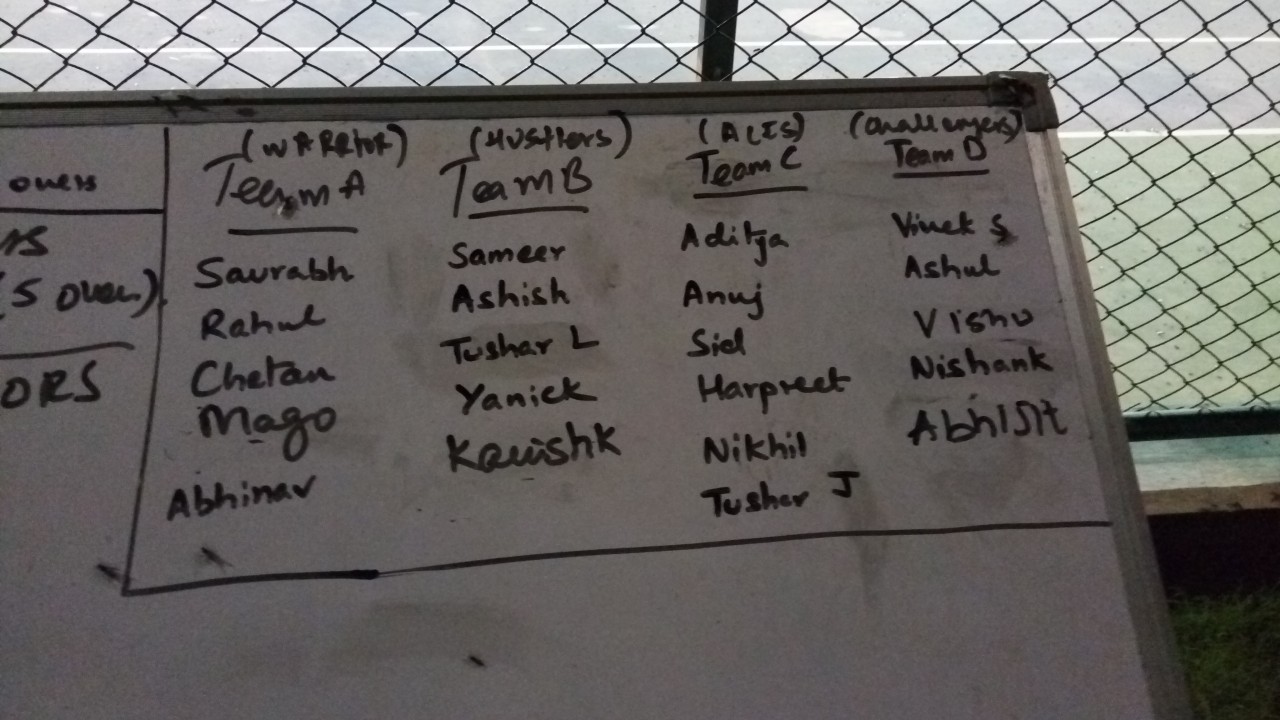 overs
(5 over)
ORS
(WARRIOR)
Team A
Saurabh
Rahul
Chetan
Mago
Abhinav
(Hustlers)
Team B
Sameer
Ashish
Tushar L
Yanick
Kauishk
(ACES)
Team C
Aditya
Anuj
Sid
Harpreet
Nikhil
Tushar J
(Challengers)
Team D
Vivek S
Ashul
Vishu
Nishank
Abhijit